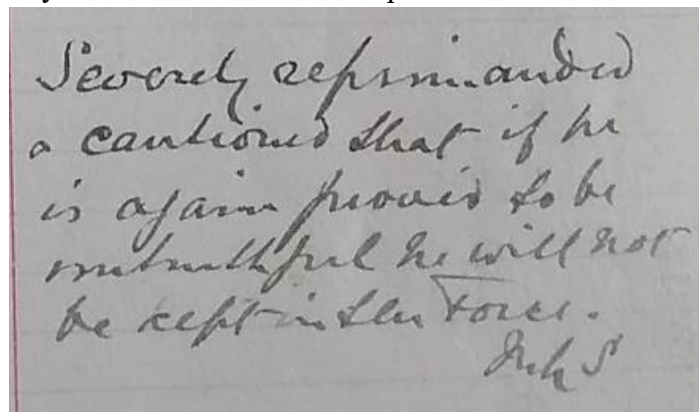 Severely reprimanded
& cautioned that if he
is again proved to be
untruthful he will not
be kept in the Force.